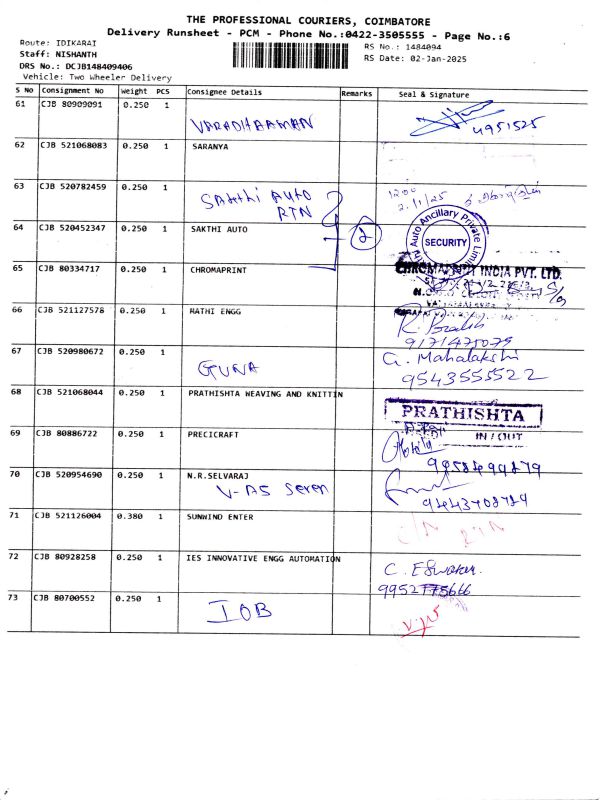 THE PROFESSIONAL COURIERS, COIMBATORE
Delivery Runsheet - PCM - Phone No.:0422-3505555 - Page No.:6
Route: IDIKARAI
RS No.: 1484094
Staff: NISHANTH
RS Date: 02-Jan-2025
DRS No.: DCJB148409406
Vehicle: Two Wheeler Delivery
S No Consignment No Weight PCS Consignee Details Remarks Seal & Signature
61 CJB 80909091 0.250 1
VARADHAAMAN
4951525
62 CJB 521068083 0.250 1 SARANYA
63 CJB 520782459 0.250 1
Sakthi Auto
RTN
1200
2/1/25
64 CJB 520452347 0.250 1 SAKTHI AUTO
2
Auto Ancillary Private
SECURITY
65 CJB 80334717 0.250 1 CHROMAPRINT
INDIA PVT. LTD.
66 CJB 521127578 0.250 1 RATHI ENGG
9171475079
67 CJB 520980672 0.250 1
GUNA
G. Mahalakshi
9543555522
68 CJB 521068044 0.250 1 PRATHISHTA WEAVING AND KNITTIN
PRATHISHTA
IN / OUT
69 CJB 80886722 0.250 1 PRECICRAFT
70 CJB 520954690 0.250 1 N.R.SELVARAJ
V-AS Seren
71 CJB 521126004 0.380 1 SUNWIND ENTER
72 CJB 80928258 0.250 1 IES INNOVATIVE ENGG AUTOMATION
C. Eswaran.
9952775666
73 CJB 80700552 0.250 1
IOB